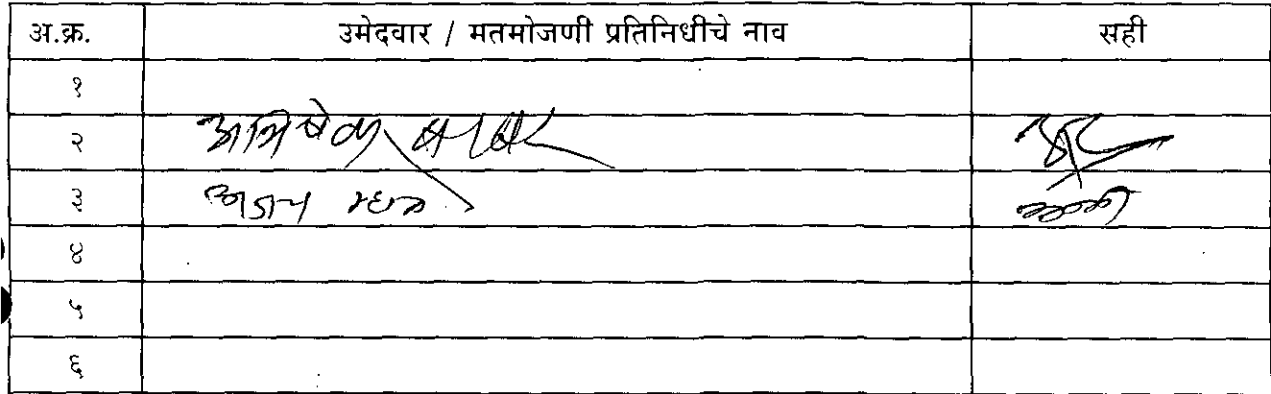 अ.क्र. उमेदवार / मतमोजणी प्रतिनिधीचे नाव सही
१
२ अभिषेक
३ अजय
४
५
६